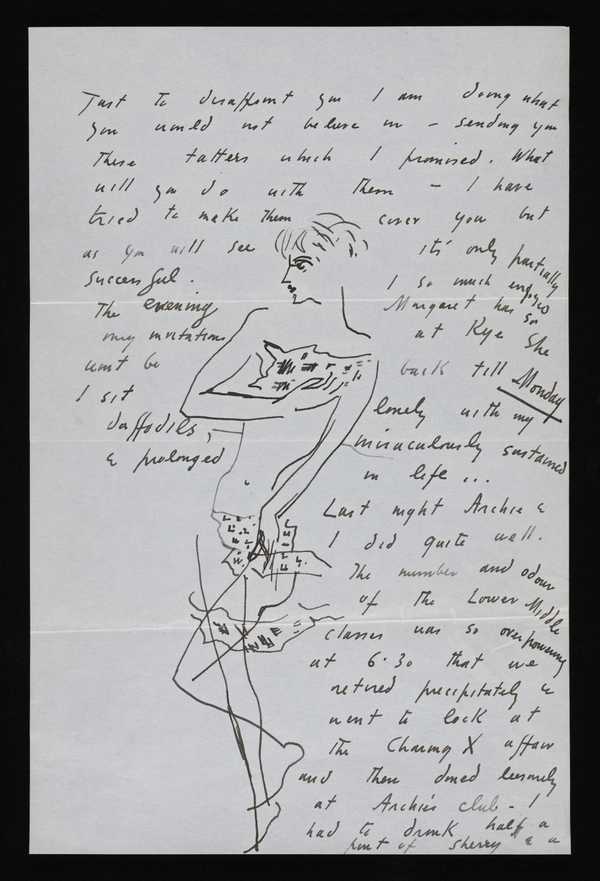 Just to disappoint you I am doing what
you would not believe in – sending you
these tatters which I promised. What
will you do with them – I have
tried to make them cover you but
as you will see it's only partially
successful. I so much enjoyed
The evening Margaret has so
many invitations at Rye She
wont be back till Monday
I sit lonely with my
daffodils, miraculously sustained
& prolonged in life ...
Last night Archie &
I did quite well.
The number and odour
of the Lower Middle
classes was so overpowering
at 6.30 that we
retired precipitately &
went to look at
the Charing X affair
and then dined leisurely
at Archie's club – I
had to drink half a
pint of sherry & a